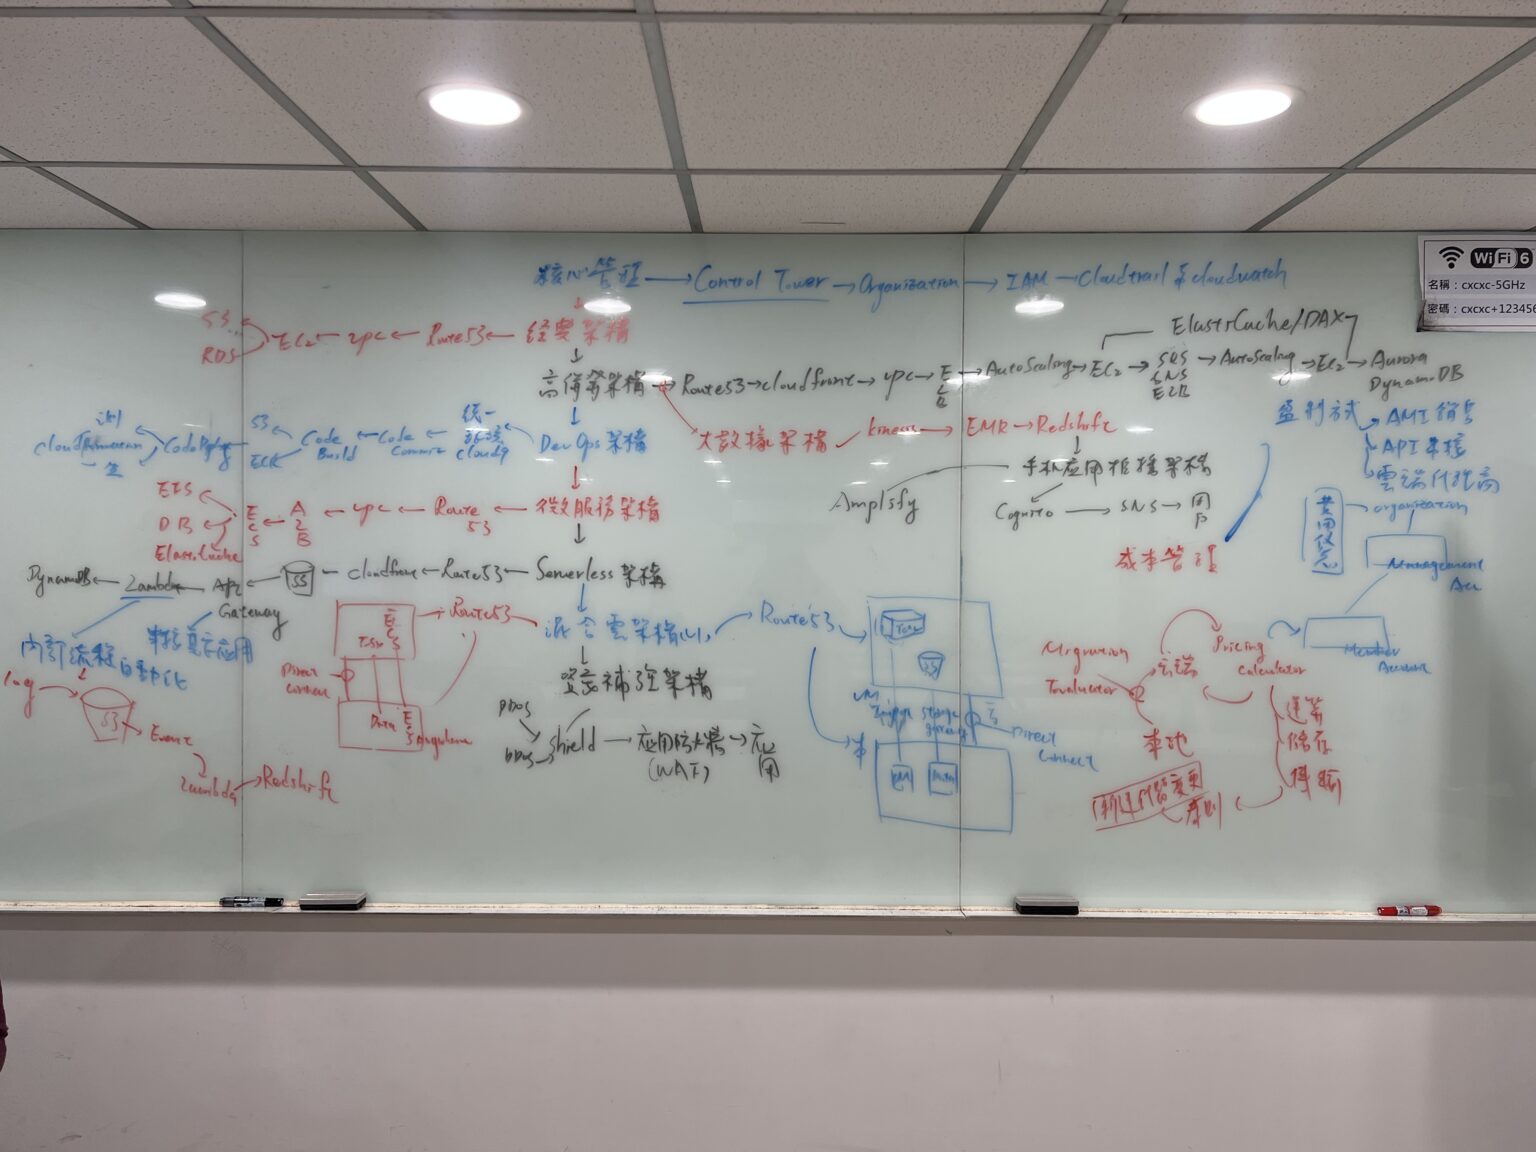 核心管理 → Control Tower → Organization → IAM → Cloudtrail & cloudwatch
WiFi 6
名稱：cxcxc-5GHz
密碼：cxcxc+123456
S3
RDS
EC2 ← vpc ← Route53 ← 经典架構
ElastiCache/DAX
高併發架構 → Route53 → cloudfront → vpc → ELB → AutoScaling → EC2 → SQS
SNS
→ AutoScaling → EC2 → Aurora
DynamoDB
測
CodeDeploy
S3
ECR
Code Build ← Code Commit ← 統一
cloud9
DevOps 架構
大數據架構
kinesis → EMR → Redshift
盈利方式
AMI 销售
API 串接
雲端代
organization
Management
Acc
Member
Account
手机应用推播架構
Amplify
Cognito → SNS → 用户
成本管理
EFS
DB
ElastiCache
ECS ← ALB ← vpc ← Route 53 ← 微服務架構
DynamoDB ← Lambda ← API Gateway ← S3 ← cloudfront ← Route53 ← Serverless 架構
内部流程自動化
log
S3
Event
Lambda → Redshift
Route53
混合雲架構
Route53
Direct
Connect
ECS
Data
ECS Anywhere
資安補強架構
DDoS
Shield → 应用防火牆 → 应用
(WAF)
S3
Storage
Direct
Connect
本
VM
Migration
Evaluator
云端
本地
Pricing
Calculator
運算
儲存
傳輸